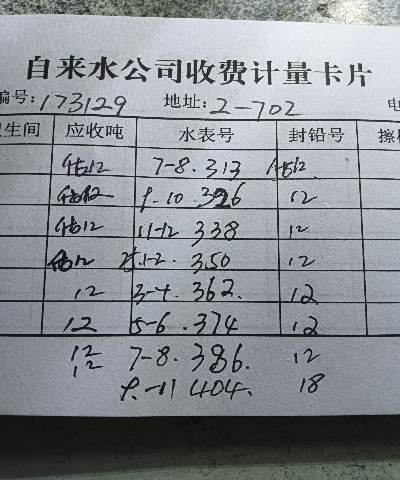 自来水公司收费计量卡片
编号: 173129 地址: 2-702 电
卫生间 应收吨 水表号 封铅号 擦
估12 7-8. 313 估12.
估12 9-10 326 12
估12 11-12 338 12
估12 1-2. 350 12
12 3-4. 362. 12
12 5-6. 374 12
12 7-8. 386. 12
12 9-11 404. 18